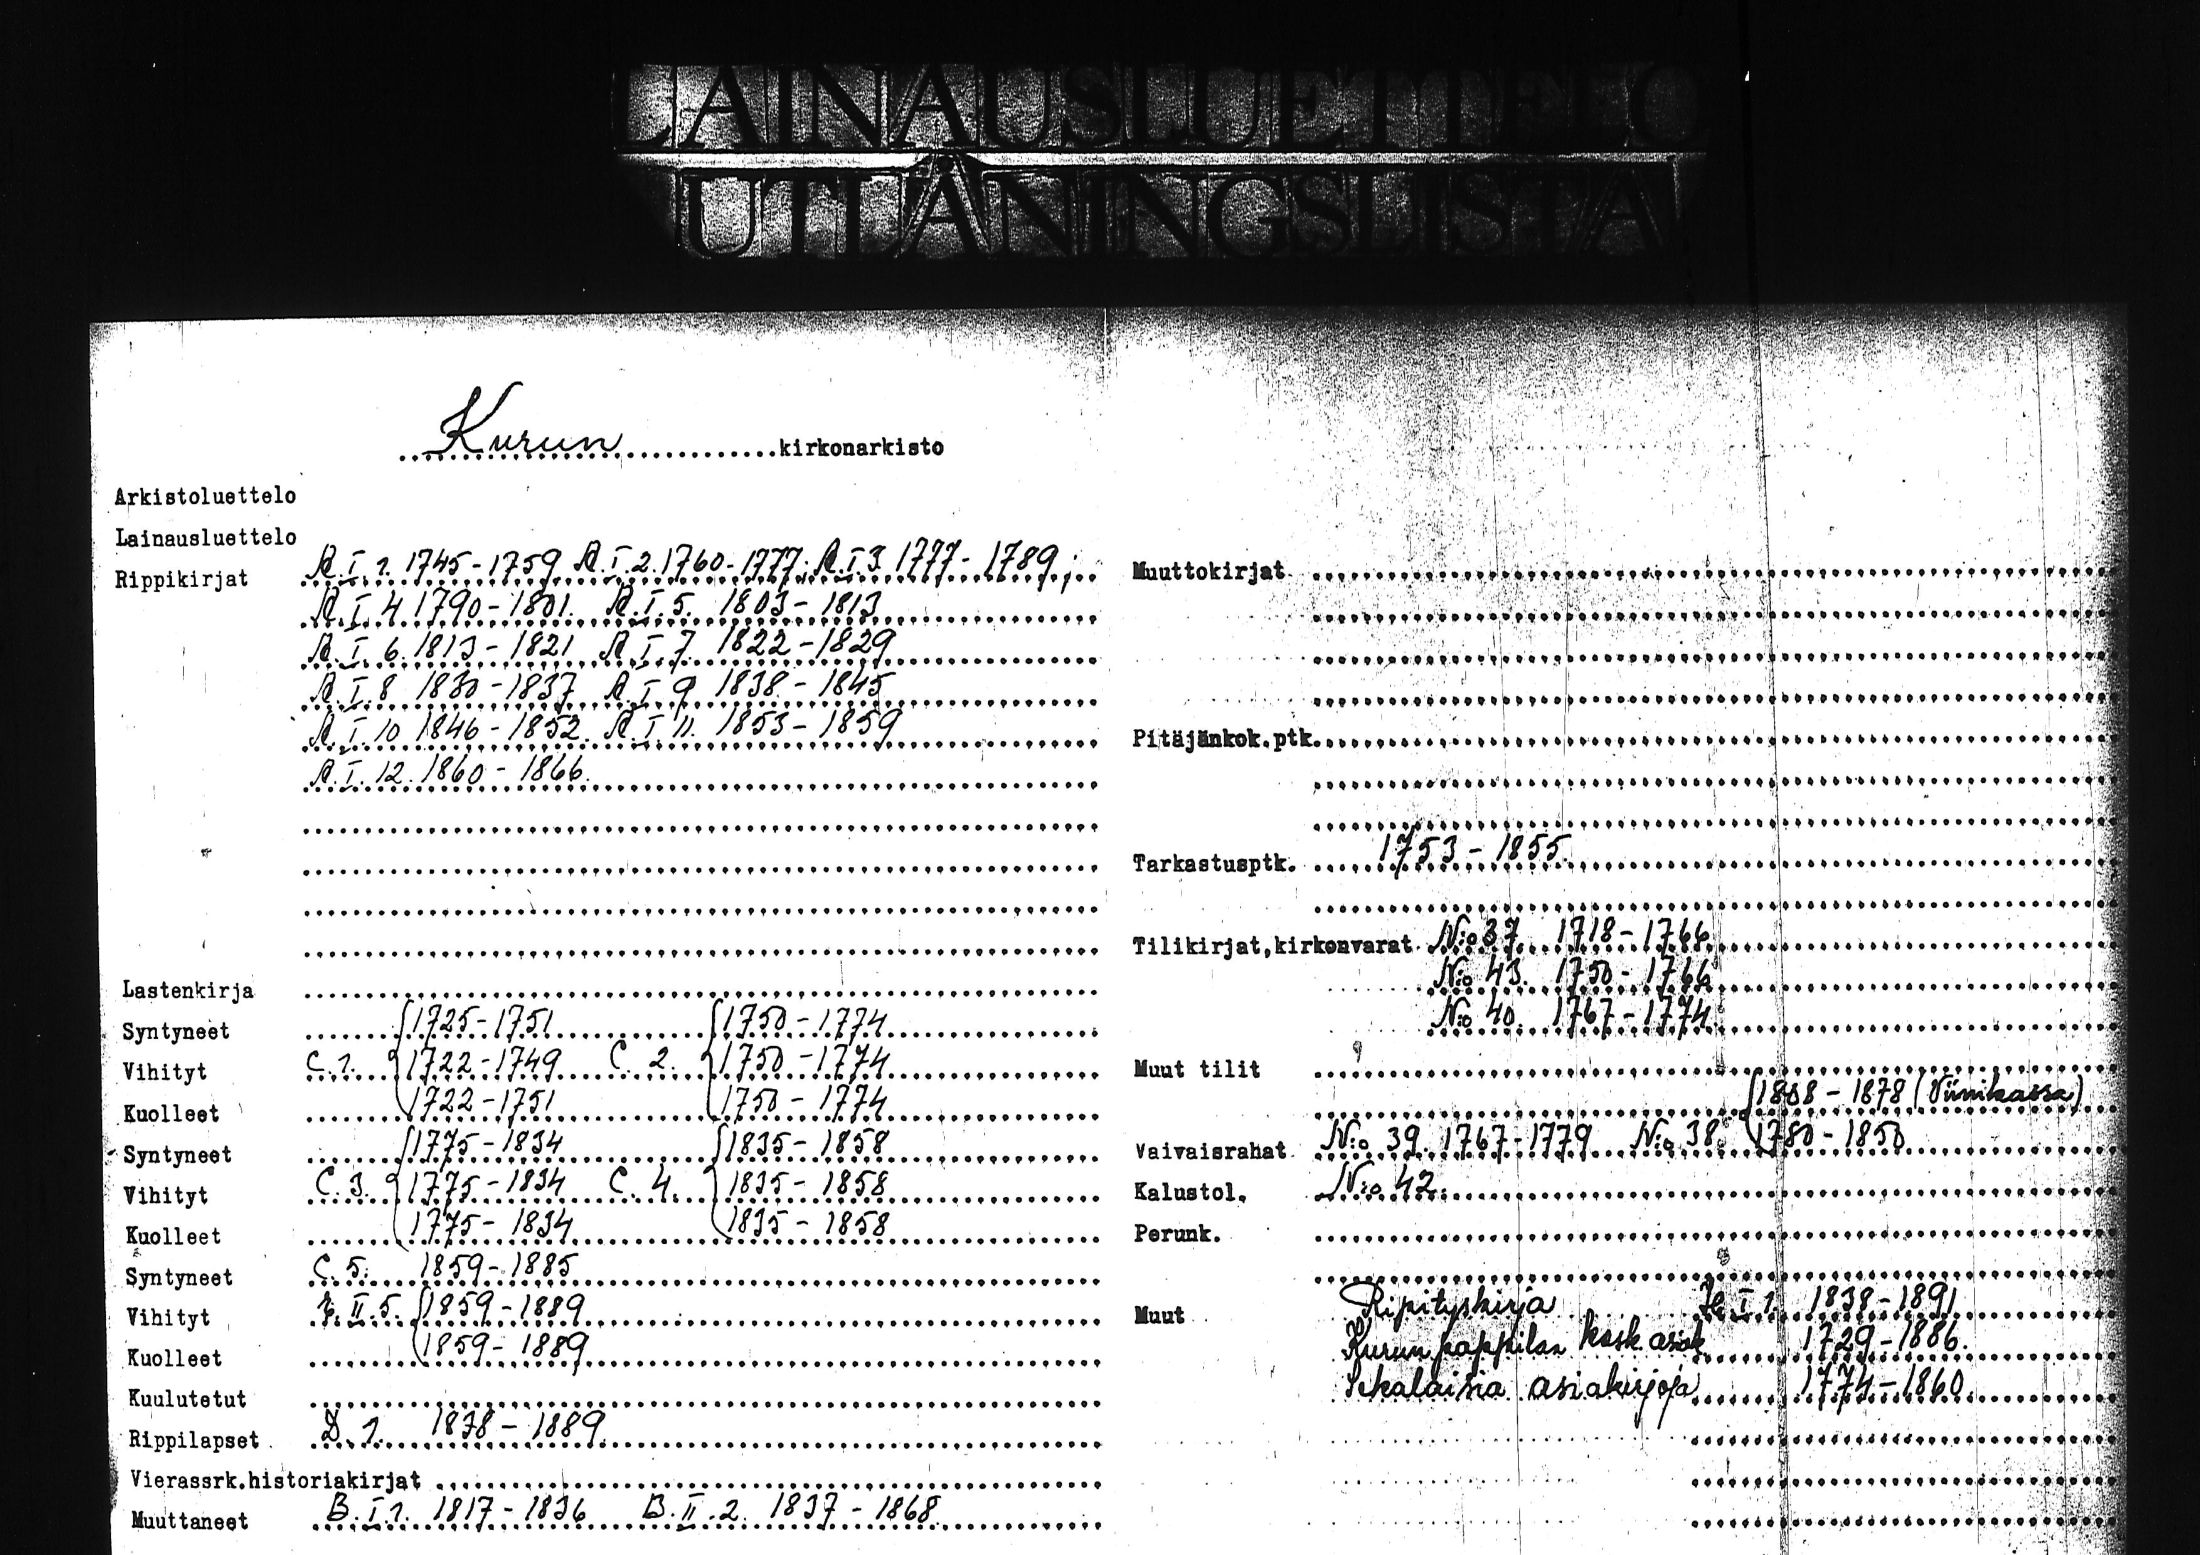 LAINAUSLUETTELO
UTLÅNINGSLISTA
Kurun kirkonarkisto
Arkistoluettelo
Lainausluettelo
Rippikirjat A.I.1. 1745-1759 A.I.2. 1760-1777. A.I.3. 1777-1789;
A.I.4 1790-1801. A.I.5. 1803-1813
A.I.6. 1813-1821 A.I.7. 1822-1829
A.I.8 1830-1837 A.I.9 1838-1845
A.I.10 1846-1852. A.I.11. 1853-1859
A.I.12. 1860-1866.
Lastenkirja
Syntyneet 1725-1751 1750-1774
Vihityt C.1. 1722-1749 C.2. 1750-1774
Kuolleet 1722-1751 1750-1774
Syntyneet 1775-1834 1835-1858
Vihityt C.3. 1775-1834 C.4. 1835-1858
Kuolleet 1775-1834 1835-1858
Syntyneet C.5. 1859-1885
Vihityt II.5. 1859-1889
Kuolleet 1859-1889
Kuulutetut
Rippilapset D.1. 1838-1889.
Vierassrk.historiakirjat
Muuttaneet B.I.1. 1817-1836 B.II.2. 1837-1868.
Muuttokirjat
Pitäjänkok.ptk.
Tarkastusptk. 1753-1855.
Tilikirjat,kirkonvarat N:o 37. 1718-1766
N:o 43. 1750-1766
N:o 40. 1767-1774
Muut tilit
1808-1878 (Viinikassa)
Vaivaisrahat N:o 39. 1767-1779 N:o 38. 1780-1850
Kalustol. N:o 42.
Perunk.
Muut Ripityskirja I 1. 1838-1891
Kurun pappilan kosk. asiak. 1729-1886.
Sekalaisia asiakirjoja 1774-1860.